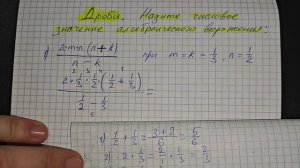 Дроби. Найдите числовое
значение алгебраического выражения:
1) 2·m·n(n+k) / n-k при m=k=1/3, n=1/2
2·1/3·1/2·(1/2+1/3) / 1/2-1/3 =
1) 1/2+1/3=3+2/6=5/6
2) 2·1/3=2/1·1/3=2/3